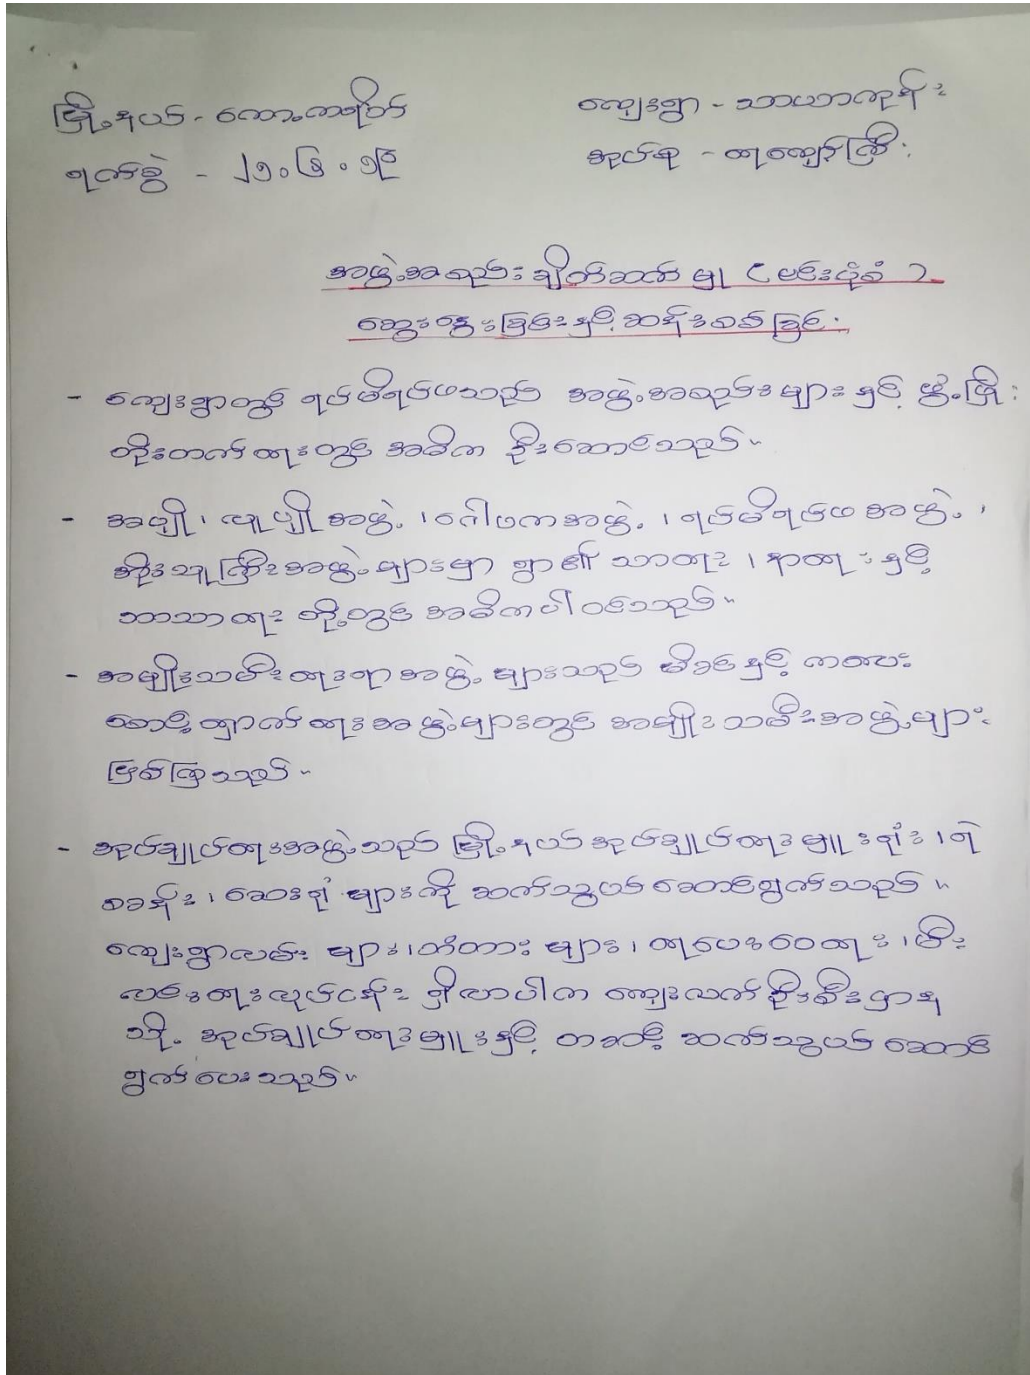 မြို့နယ် - ကော့ကရိတ်
ကျေးရွာ - သာယာကုန်း
ရက်စွဲ - ၂၅.၆.၁၉
အုပ်စု - ထုကျော်ကြီး
အဖွဲ့အစည်းချိတ်ဆက်မှု ( ဗင်းပုံစံ )
ဆွေးနွေးခြင်းနှင့်ဆန်းစစ်ခြင်း
- ကျေးရွာတွင် ရပ်မိရပ်ဖသည် အဖွဲ့အစည်းများနှင့် ဖွံ့ဖြိုး
တိုးတက်ရေးတွင် အဓိက ဦးဆောင်သည်။
- အပျို၊ လူပျိုအဖွဲ့၊ ဂေါပကအဖွဲ့၊ ရပ်မိရပ်ဖအဖွဲ့၊
အိုးသူကြီးအဖွဲ့များမှာ ရွာ၏ သာရေး၊ နာရေးနှင့်
ဘာသာရေး တို့တွင် အဓိကပါဝင်သည်။
- အမျိုးသမီးရေးရာအဖွဲ့ များသည် မိခင်နှင့် ကလေး
စောင့်ရှောက်ရေးအဖွဲ့များတွင် အမျိုးသမီးအဖွဲ့များ
ဖြစ်ကြသည်။
- အုပ်ချုပ်ရေးအဖွဲ့သည် မြို့နယ်အုပ်ချုပ်ရေးမှူးရုံး၊ ရဲ
စခန်း၊ ဆေးရုံများကို ဆက်သွယ်ဆောင်ရွက်သည်။
ကျေးရွာလမ်းများ၊ တံတားများ၊ ရေပေးဝေရေး၊ မီး
လင်းရေးလုပ်ငန်း ရှိလာပါက ကျေးလက်ဦးစီးဌာန
သို့ အုပ်ချုပ်ရေးမှူးနှင့် တဆင့် ဆက်သွယ်ဆောင်
ရွက်ပေးသည်။